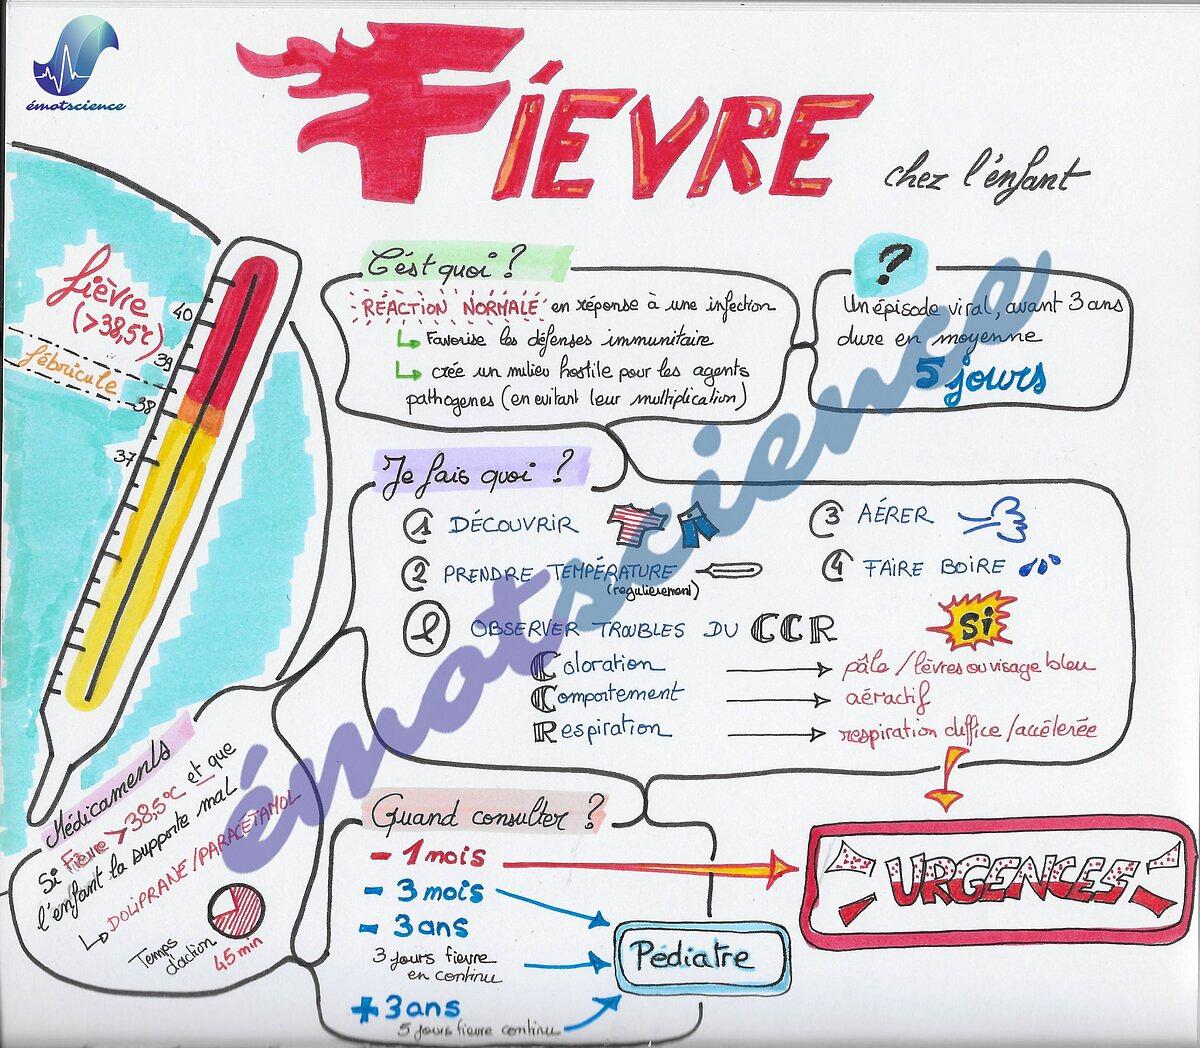 émotscience
FIÈVRE
chez l'enfant
fièvre
(>38,5°c)
fébricule
40
39
38
37
C'est quoi ?
RÉACTION NORMALE en réponse à une infection
Favorise les défenses immunitaire
crée un milieu hostile pour les agents
pathogenes (en evitant leur multiplication)
?
Un épisode viral, avant 3 ans
dure en moyenne
5 jours
Je fais quoi ?
1 DÉCOUVRIR
2 PRENDRE TEMPÉRATURE
(regulierement)
3 AÉRER
4 FAIRE BOIRE
OBSERVER TROUBLES DU CCR
Si
Coloration
pâle / lèvres ou visage bleu
Comportement
aéractif
Respiration
respiration diffice / accélerée
Médicaments
Si Fièvre > 38,5°c et que
l'enfant la supporte mal
DOLIPRANE / PARACÉTAMOL
Temps
d'action
45 min
Quand consulter ?
- 1 mois
- 3 mois
- 3 ans
3 jours fievre
en continu
+ 3 ans
5 jours fievre continu
Pédiatre
URGENCES
émotscience